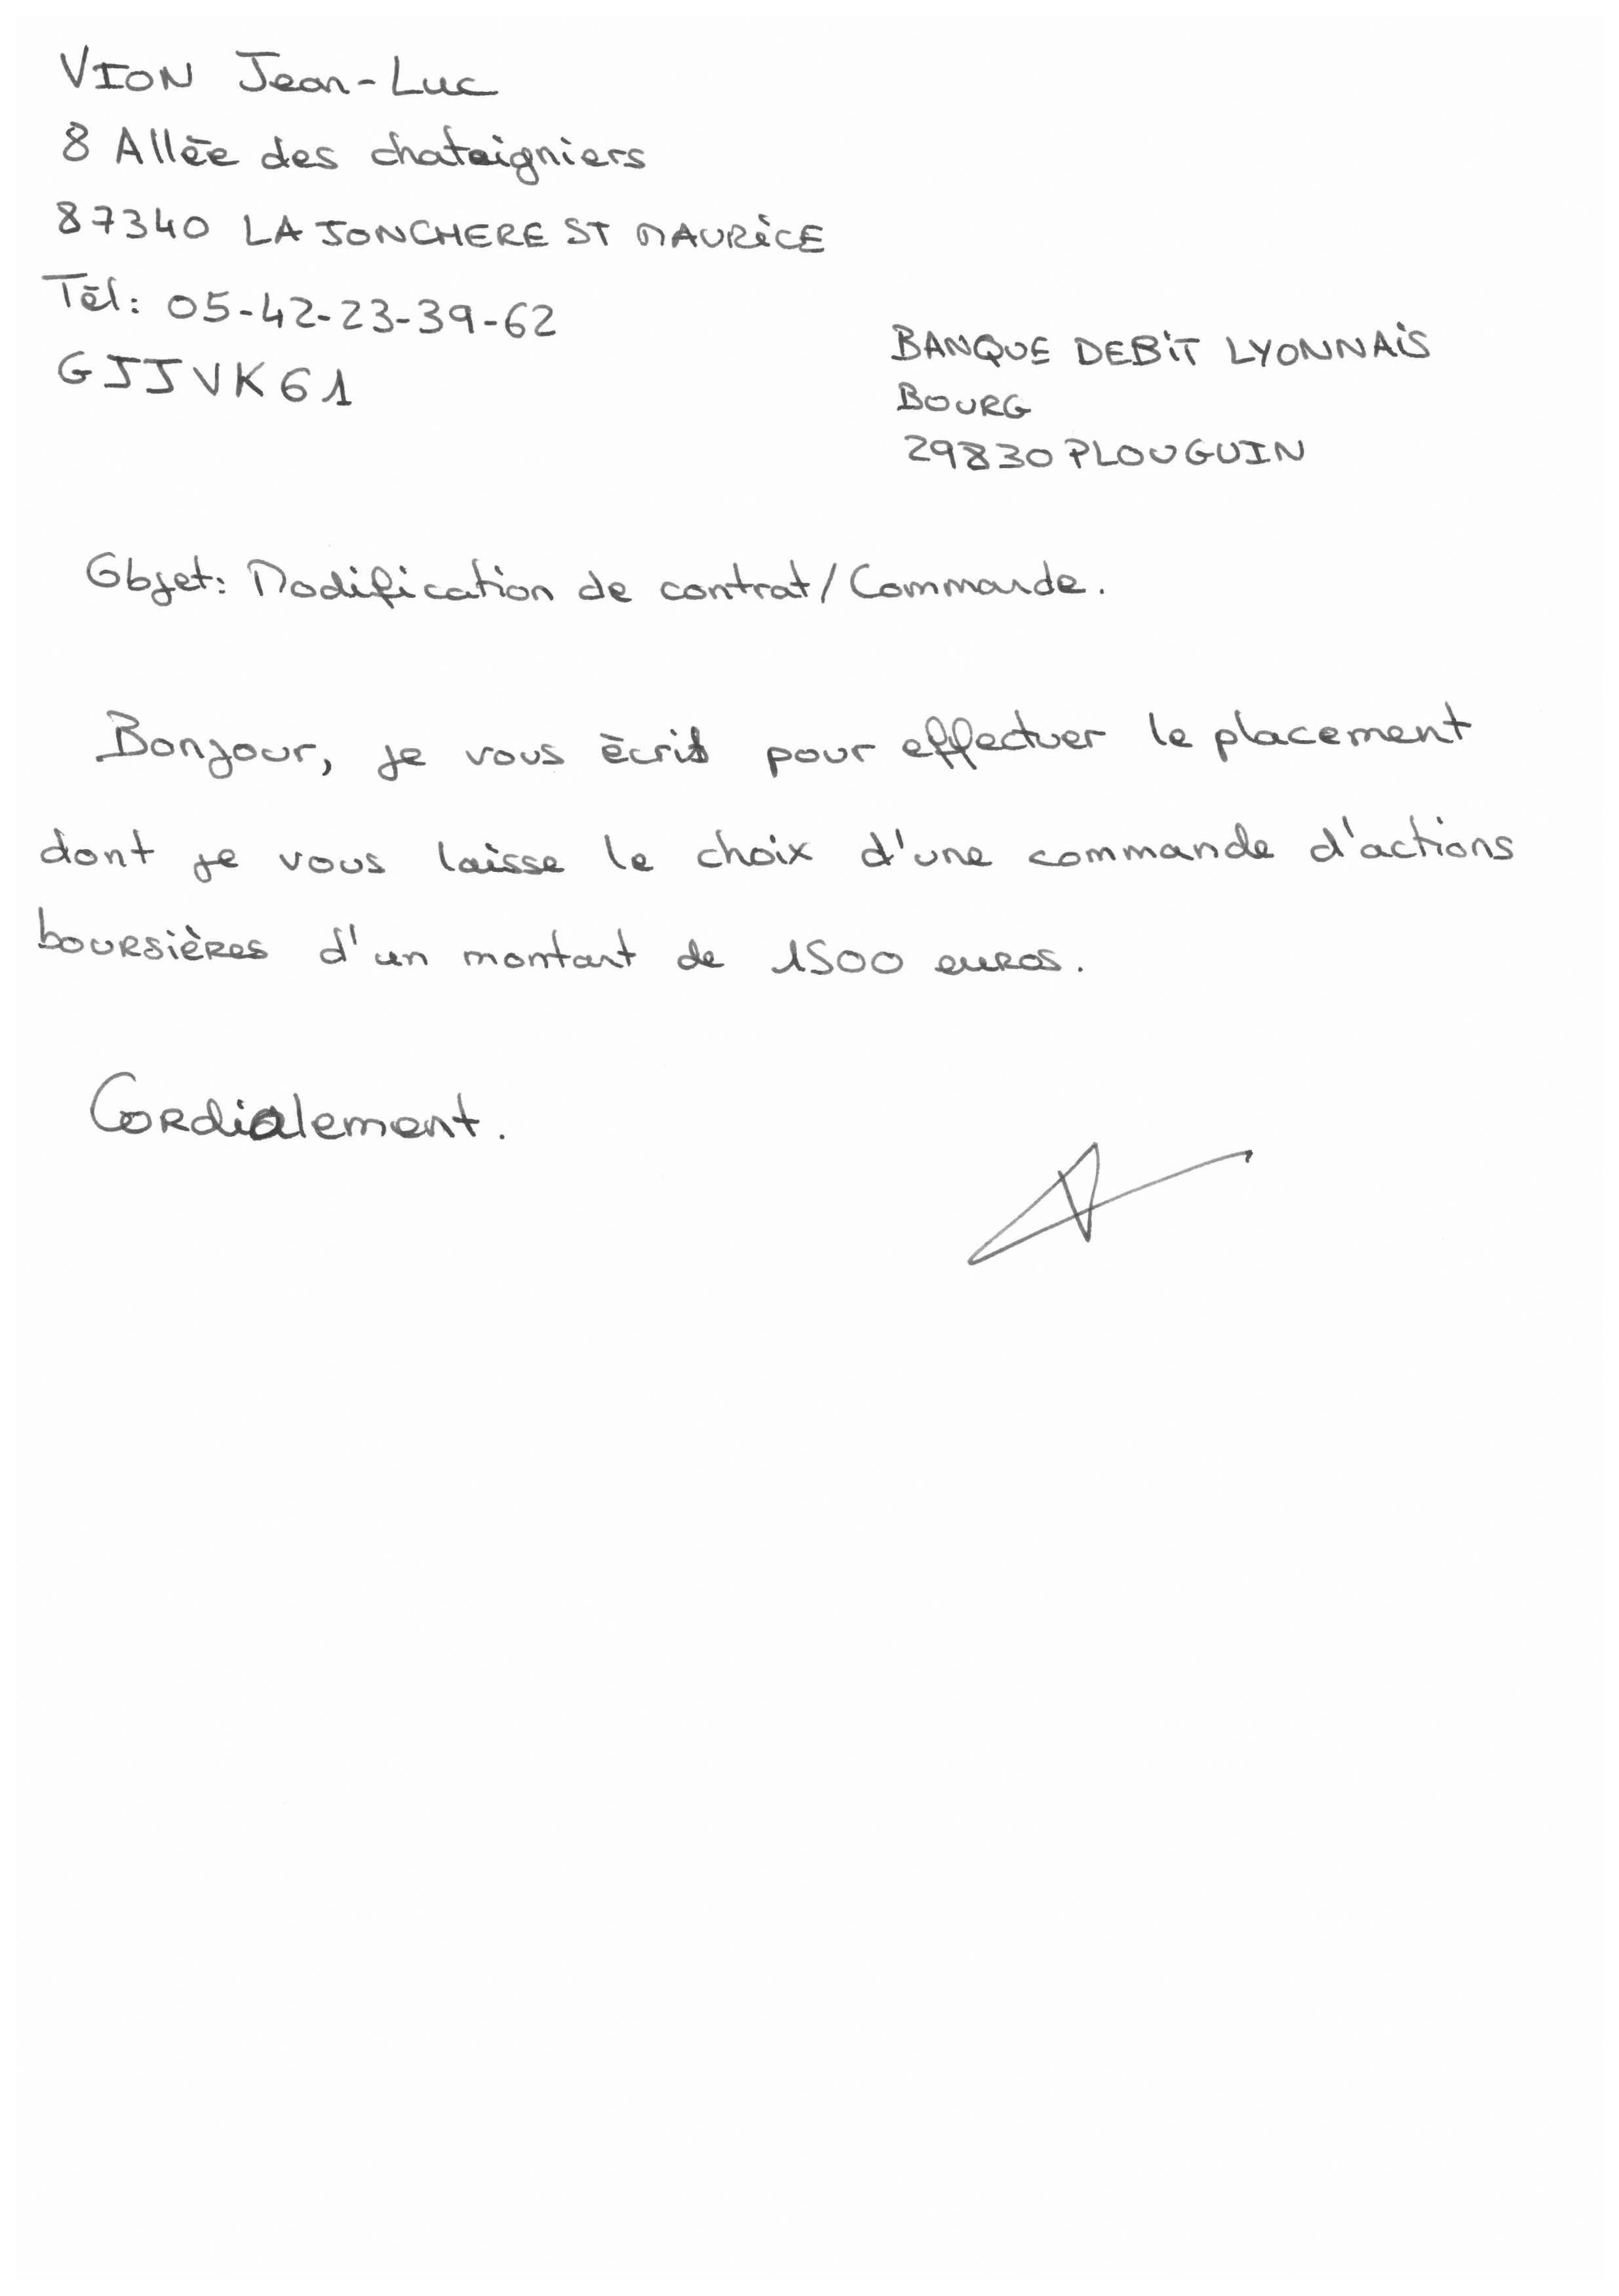 VION Jean-Luc
8 Allée des chataigniers
87340 LA JONCHERE ST MAURICE
Tél: 05-42-23-39-62
GJJVK61
BANQUE DEBIT LYONNAIS
BOURG
29830 PLOUGUIN
Objet: Modification de contrat/Commande.
Bonjour, je vous écris pour effectuer le placement
dont je vous laisse le choix d'une commande d'actions
boursières d'un montant de 1500 euros.
Cordialement.